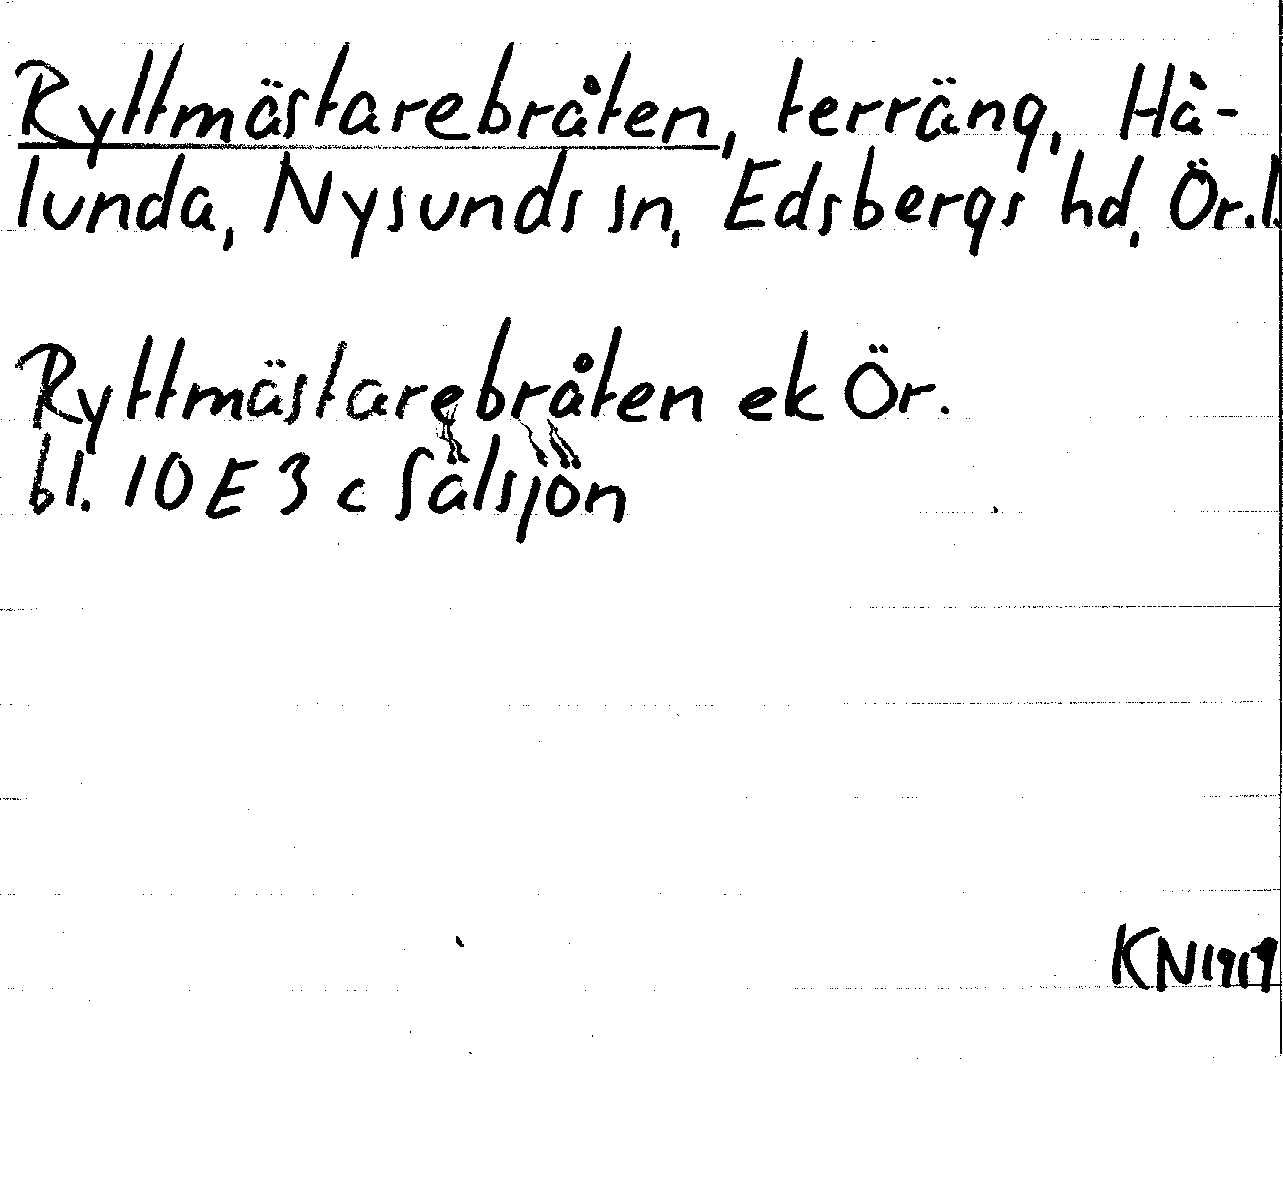 Ryttmästarebråten, terräng, Hå-
lunda, Nysunds sn, Edsbergs hd, Ör.l.
Ryttmästarebråten ek Ör.
bl. 10 E 3 c Sälsjön
KN1919